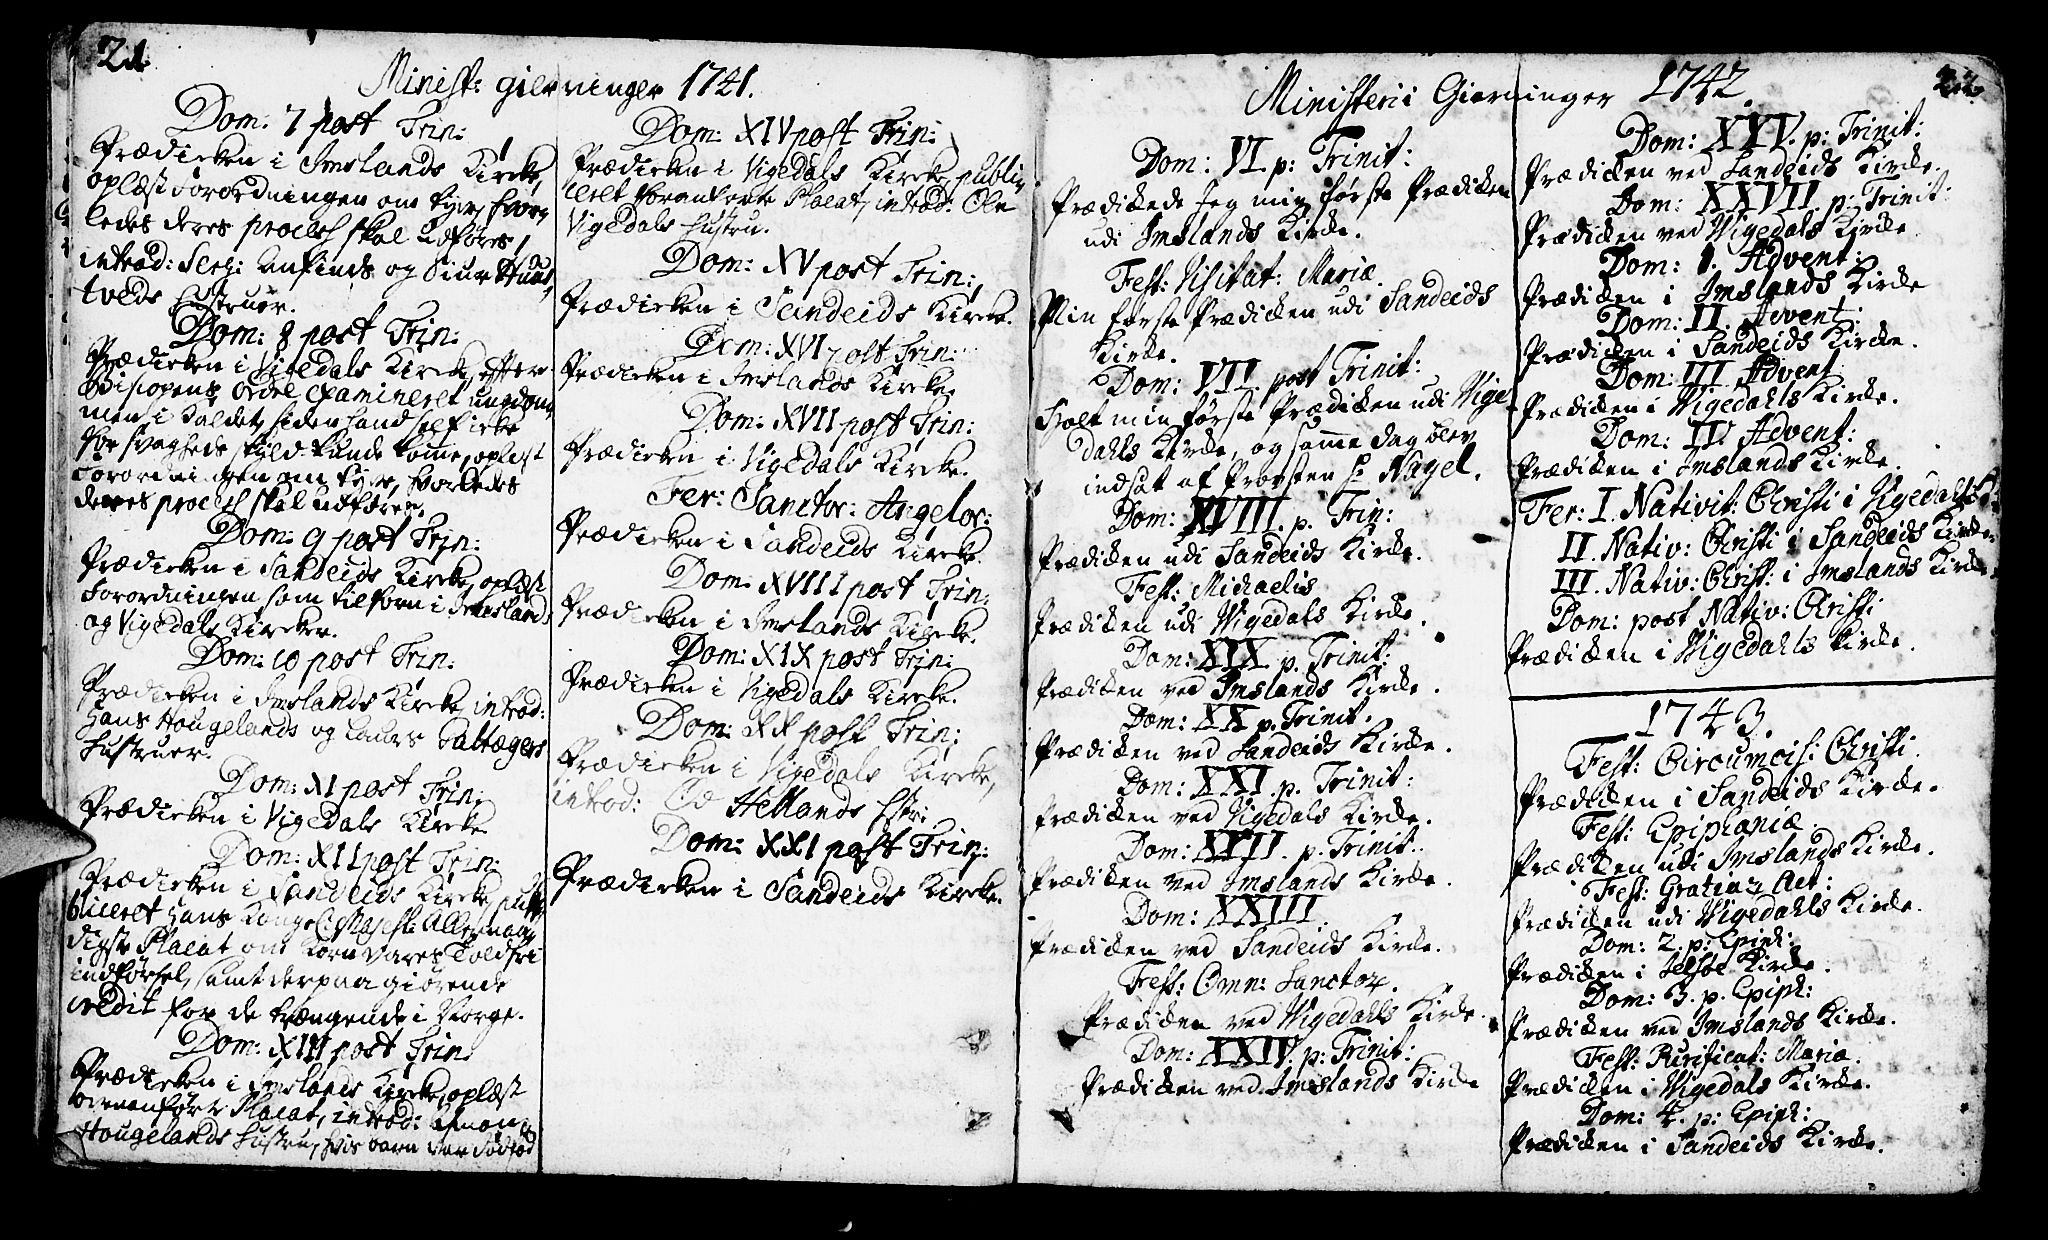 21.
Minist: gierninger 1741.
Dom: 7 post Trin:
Prædicken i Imslands Kircke,
oplæst forordningen om tyve, hvor-
ledes deres process skal udføres,
introd: Serg: Anfinds og Siur
tveds Hustruer.
Dom: 8 post Trin:
Prædicken i Vigedals Kircke, efter
Bispens Ordre, examineret ungdom-
men i Kaldet, siden hand self icke
for svagheds skyld kunde komme, oplæst
forordningen om tyve, hvorledes
deres process skal udføres.
Dom: 9 post Trin:
Prædicken i Sandeids Kircke, oplæst
forordningen som tilforn i Imslands
og Vigedals Kircker.
Dom: 10 post Trin:
Prædicken i Imslands Kircke introd:
Hans Hougelands og
Hustruer.
Dom: XI post Trin:
Prædicken i Vigedals Kircke
Dom: XII post Trin:
Prædicken i Sandeids Kircke, pub-
liceret Hans Konge: Majest: Allernaa-
digste Placat om Korn Vares Toldfri
indførsel, samt derpaa giørende
credit for de trængende i Norge.
Dom: XIII post Trin:
Prædicken i Imslands Kircke, oplæst
ovenanførte Placat, introd:
Hougelands Hustru, hvis barn var dødfød
Dom: XIV post Trin:
Prædicken i Vigedals Kircke, publi-
ceret foranførte Placat, introd: Ole
Vigedals Hustru.
Dom: XV post Trin:
Prædicken i Sandeids Kircke.
Dom: XVI post Trin:
Prædicken i Imslands Kircke.
Dom: XVII post Trin:
Prædicken i Vigedals Kircke.
Fer: Sanctor: Angelor:
Prædicken i Sandeids Kircke.
Dom: XVIII post Trin:
Prædicken i Imslands Kircke.
Dom: XIX post Trin:
Prædicken i Vigedals Kircke.
Dom: XX post Trin:
Prædicken i Vigedals Kircke,
introd: Hellands Hstr:
Dom: XXI post Trin:
Prædicken i Sandeids Kircke.
Ministerii Gierninger 1742.
22.
Dom: VI p: Trinit:
Prædickede Jeg min første Prædicken
udi Imslands Kircke.
Fest: Visitat: Mariæ
Min første Prædicken udi Sandeids
Kircke.
Dom: VII. post Trinit:
Holt min første Prædicken udi Vige-
dahls Kircke, og samme dag blev
indsat af Provsten Hr Nagel.
Dom: XVIII. p. Trin:
Prædicken udi Sandeids Kircke.
Fest: Michaelis
Prædicken udi Vigedals Kircke.
Dom: XIX. p. Trinit:
Prædicken ved Imslands Kircke.
Dom: XX p. Trinit.
Prædicken ved Sandeids Kircke.
Dom: XXI. p. Trinit:
Prædicken ved Vigedals Kircke.
Dom: XXII. p. Trinit:
Prædicken ved Imslands Kircke.
Dom: XXIII.
Prædicken ved Sandeids Kircke.
Fest: Omn: Sanctor.
Prædicken ved Wigedahls Kircke.
Dom: XXIV. p: Trinit:
Prædicken ved Imslands Kircke
Dom: XXV. p: Trinit:
Prædicken ved Sandeids Kircke.
Dom: XXVII p: Trinit:
Prædicken ved Wigedals Kircke
Dom: 1. Advent:
Prædicken i Imslands Kircke
Dom: II. Advent:
Prædicken i Sandeids Kircke.
Dom: III. Advent
Prædicken i Wigedahls Kircke.
Dom: IV Advent:
Prædicken i Imslands Kircke.
Fer: I. Nativit: Christi i Vigedals Kir:
II. Nativ: Christi i Sandeids Kircke.
III. Nativ: Christ: i Imslands Kircke.
Dom: post Nativ: Christi
Prædicken i Wigedahls Kircke.
1743.
Fest: Circumcis: Christi.
Prædicken i Sandeids Kircke.
Fest: Epiphaniæ.
Prædicken udi Imslands Kircke.
Fest: Gratiar Act:
Prædicken udi Wigedahls Kircke.
Dom: 2. p: Epiph:
Prædicken i Jelsøe Kircke.
Dom: 3. p. Epiph:
Prædicken ved Imslands Kircke.
Fest: Purificat: Mariæ.
Prædicken i Wigedals Kircke.
Dom: 4. p: Epiph:
Prædicken i Sandeids Kircke.